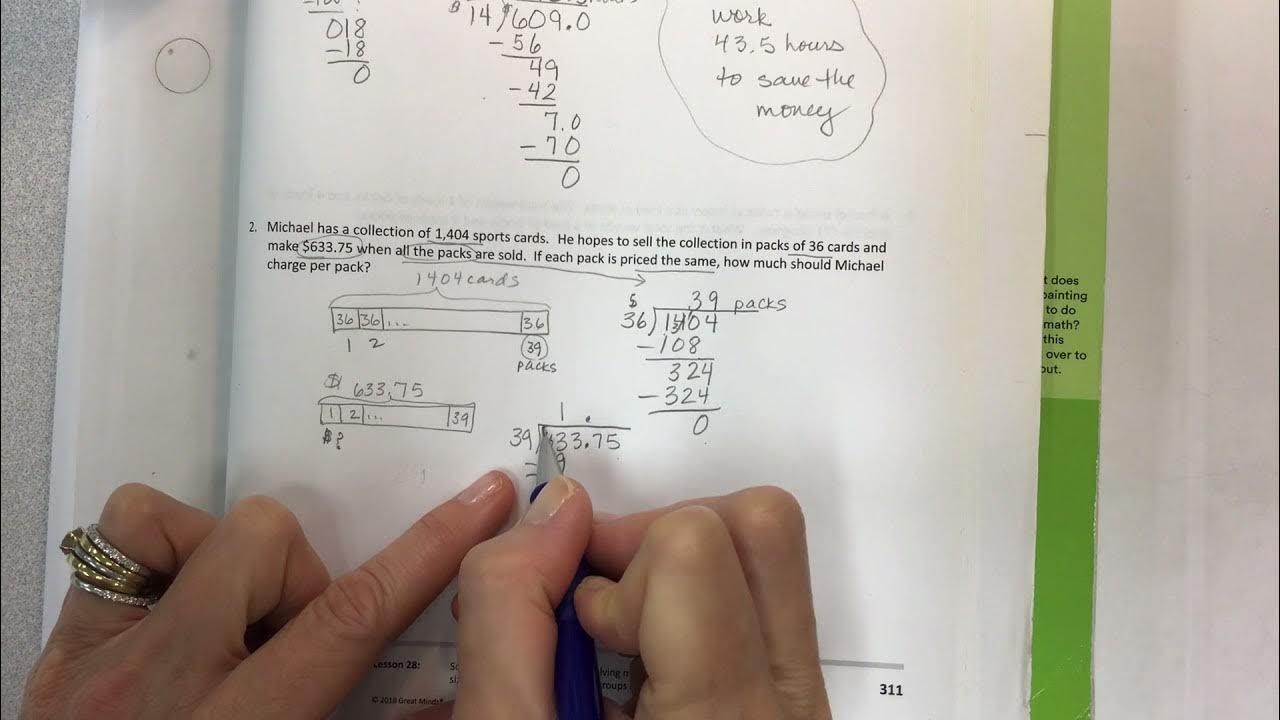 018
-18
0
14)609.0
-56
49
-42
7.0
-70
0
work
43.5 hours
to save the
money
2. Michael has a collection of 1,404 sports cards. He hopes to sell the collection in packs of 36 cards and
make $633.75 when all the packs are sold. If each pack is priced the same, how much should Michael
charge per pack?
1404 cards
36 36 ... 36
1 2 39
packs
$ 633.75
1 2 ... 39
$?
$ 39 packs
36)1404
-108
324
-324
0
1 .
39) 33.75
t does
painting
to do
math?
this
over to
out.
Lesson 28:
© 2018 Great Minds
311